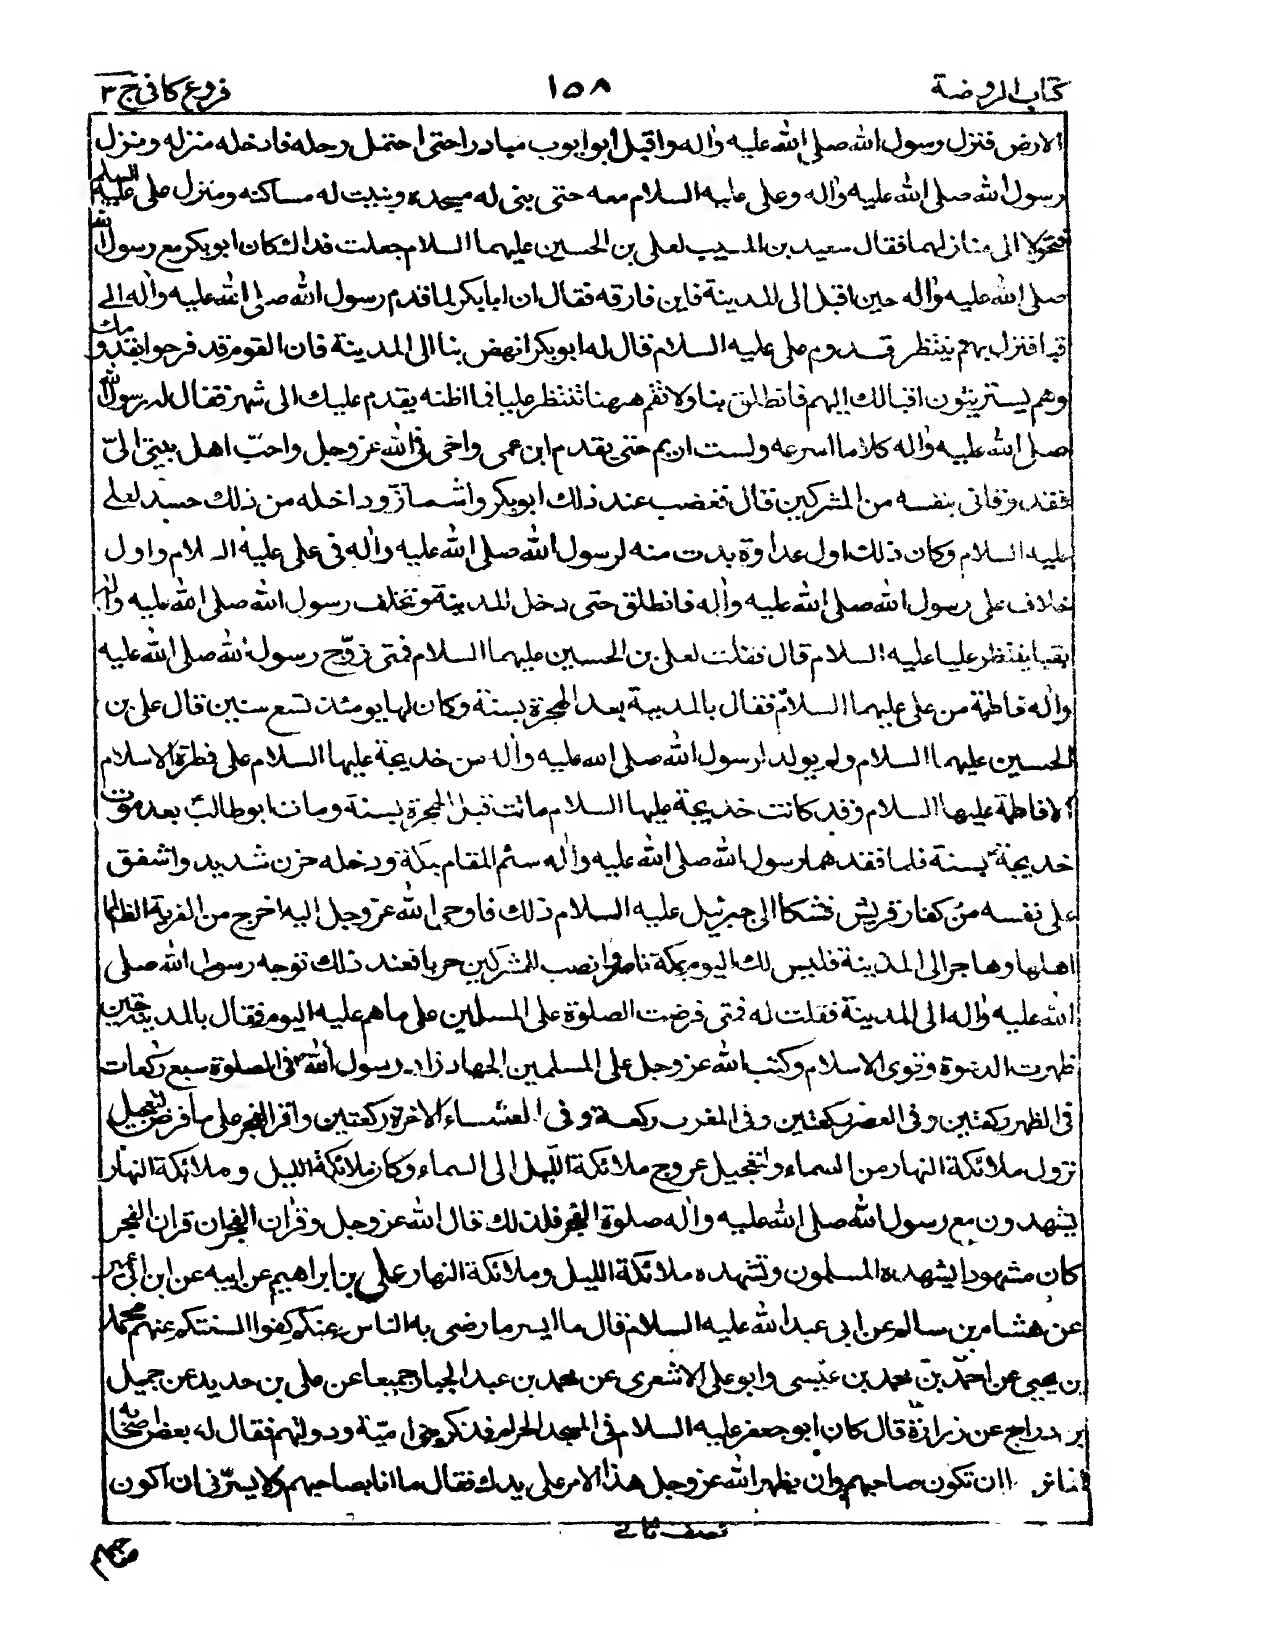 كتاب الروضة ١٥٨ فروع كافي ج ٣
الارض فنزل رسول الله صلى الله عليه واله واقبل ابو ايوب مبادرا حتى احتمل رحله فادخله منزله ونزل
رسول الله صلى الله عليه واله وعلى عليه السلام معه حتى بنى له مسجده وبنيت له مساكنه ومنزل على عليه السلم
فتحولا الى منازلهما فقال سعيد بن المسيب لعلى بن الحسين عليهما السلام جعلت فداك كان ابو بكر مع رسول الله
صلى الله عليه واله حين اقبل الى المدينة فاين فارقه فقال ان ابا بكر لما قدم رسول الله صلى الله عليه واله الى
قبا فنزل بهم ينتظر قدوم على عليه السلام قال له ابو بكر انهض بنا الى المدينة فان القوم قد فرحوا بقدومك
وهم يستريثون اقبالك اليهم فانطلق بنا ولا تقم ههنا تنتظر عليا فما اظنه يقدم عليك الى شهر فقال له رسول الله
صلى الله عليه واله كلا ما اسرعه ولست اريم حتى يقدم ابن عمى واخى فى الله عز وجل واحب اهل بيتى الىّ
فقد وقانى بنفسه من المشركين قال فغضب عند ذلك ابو بكر واشمأز وداخله من ذلك حسد لعلى
عليه السلام وكان ذلك اول عداوة بدت منه لرسول الله صلى الله عليه واله فى على عليه السلام واول
خلاف على رسول الله صلى الله عليه واله فانطلق حتى دخل المدينة وتخلف رسول الله صلى الله عليه واله
بقبا ينتظر عليا عليه السلام قال فقلت لعلى بن الحسين عليهما السلام فمتى زوّج رسول الله صلى الله عليه
واله فاطمة من على عليهما السلام فقال بالمدينة بعد الهجرة بسنة وكان لها يومئذ تسع سنين قال على بن
الحسين عليهما السلام ولم يولد لرسول الله صلى الله عليه واله من خديجة عليها السلام على فطرة الاسلام
الا فاطمة عليها السلام وقد كانت خديجة عليها السلام ماتت قبل الهجرة بسنة ومات ابو طالب بعد موت
خديجة بسنة فلما فقدهما رسول الله صلى الله عليه واله سئم المقام بمكة ودخله حزن شديد واشفق
على نفسه من كفار قريش فشكا الى جبرئيل عليه السلام ذلك فاوحى الله عز وجل اليه اخرج من القرية الظالم
اهلها وهاجر الى المدينة فليس لك اليوم بمكة ناصر وانصب للمشركين حربا فعند ذلك توجه رسول الله صلى
الله عليه واله الى المدينة فقلت له فمتى فرضت الصلوة على المسلمين على ما هم عليه اليوم فقال بالمدينة حين
ظهرت الدعوة وقوى الاسلام وكتب الله عز وجل على المسلمين الجهاد زاد رسول الله فى الصلوة سبع ركعات
فى الظهر ركعتين وفى العصر ركعتين وفى المغرب ركعة وفى العشاء الاخرة ركعتين واقر الفجر على ما فرضت لتعجيل
نزول ملائكة النهار من السماء ولتعجيل عروج ملائكة الليل الى السماء وكان ملائكة الليل وملائكة النهار
يشهدون مع رسول الله صلى الله عليه واله صلوة الفجر فلذلك قال الله عز وجل وقران الفجر ان قران الفجر
كان مشهودا يشهده المسلمون وتشهده ملائكة الليل وملائكة النهار على بن ابراهيم عن ابيه عن ابن ابى عمير
عن هشام بن سالم عن ابى عبد الله عليه السلام قال ما ايسر ما رضى به الناس عنكم كفوا السنتكم عنهم محمد
بن يحيى عن احمد بن محمد بن عيسى وابو على الاشعرى عن محمد بن عبد الجبار جميعا عن على بن حديد عن جميل
بن دراج عن زرارة قال كان ابو جعفر عليه السلام فى المسجد الحرام فذكر بنى امية ودولتهم فقال له بعض اصحابه
انما نرجو ان تكون صاحبهم وان يظهر الله عز وجل هذا الامر على يدك فقال ما انا بصاحبهم ولا يسرّنى ان اكون
نصف ثانى
صاحبهم